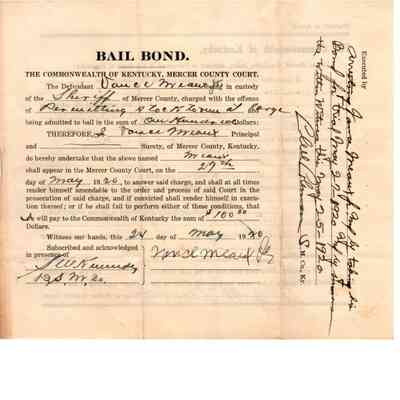 BAIL BOND.
THE COMMONWEALTH OF KENTUCKY, MERCER COUNTY COURT.
The Defendant Vance Meaux in custody
of the Sheriff of Mercer County, charged with the offense
of Permitting Stock to run at large
being admitted to bail in the sum of One Hundred Dollars:
THEREFORE, I Vance Meaux Principal
and Surety, of Mercer County, Kentucky,
do hereby undertake that the above named Meaux
shall appear in the Mercer County Court, on the 27th
day of May 1920, to answer said charge, and shall at all times
render himself amendable to the order and process of said Court in the
prosecution of said charge, and if convicted shall render himself in execu-
tion thereof; or if he shall fail to perform either of these conditions, that
I will pay to the Commonwealth of Kentucky the sum of $100.00
Dollars.
Witness our hands, this 24 day of May 1920
Subscribed and acknowledged
in presence of
Vance Meaux
Kennedy
Executed by
Vance Meaux by taking
Bond for May 27 1920
the within this May 25 1920
S. M. Co., Ky.